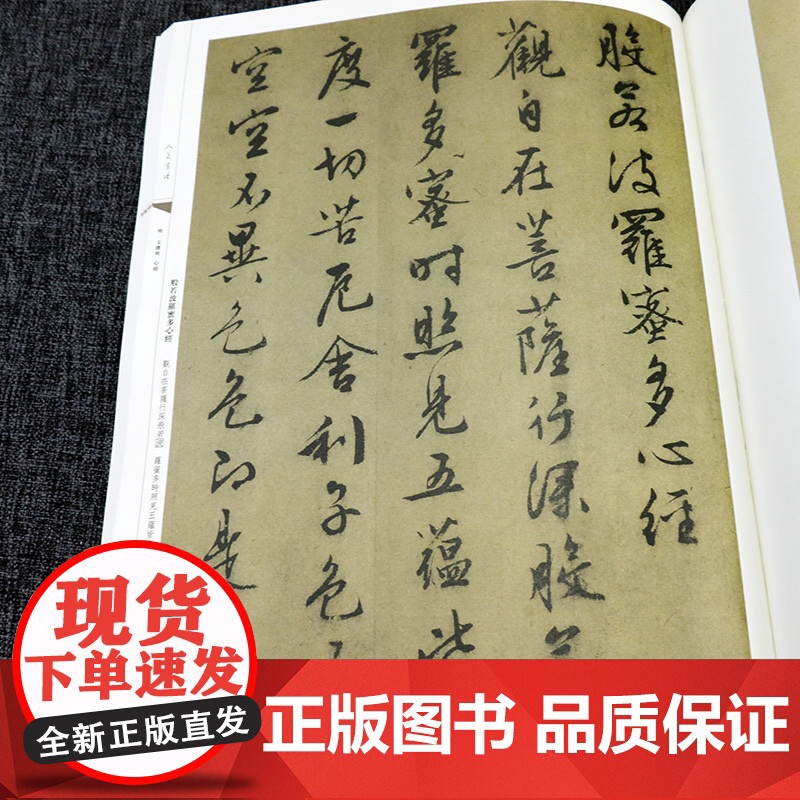 般若波羅蜜多心經
觀自在菩薩行深般若
羅多蜜時照見五蘊皆
度一切苦厄舍利子色
空空不異色色即是
人美书法
明 文徵明 心经
般若波羅蜜多心經
觀自在菩薩行深般若[波] 羅蜜多時照見五蘊
现货
全新正版
正版图书 品质保证